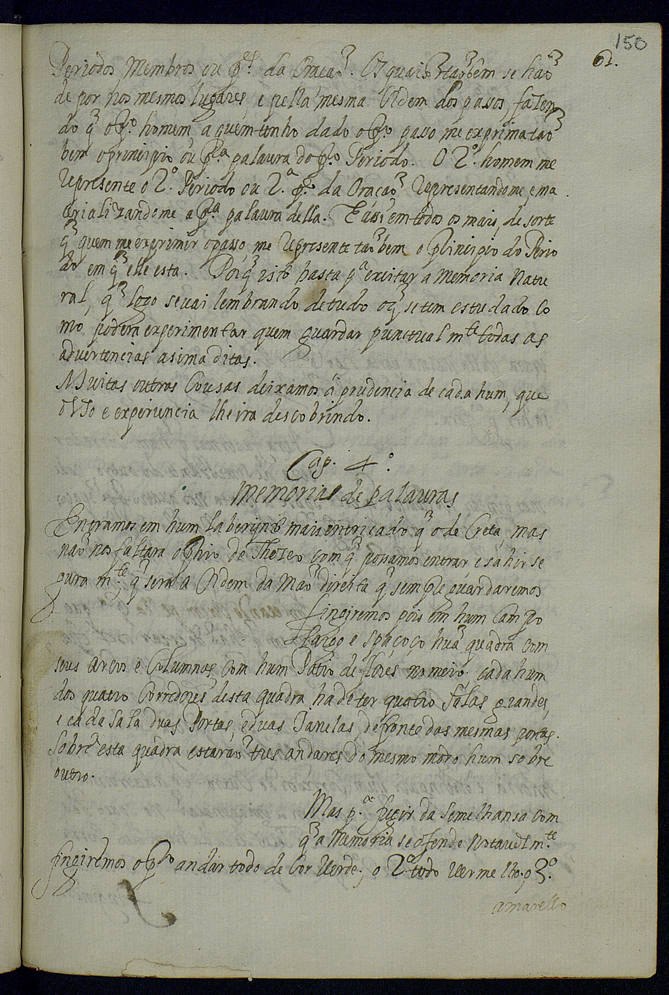 150
61.
Periodos Membros ou p.tes da Oracaõ. Os quais taõbem se haõ
de por nos mesmos lugares e pella mesma Ordem dos passos fazen
do q̃ o pr.o homem a quem tenho dado o pr.o passo me exprima taõ
bem o principio ou pr.a palaura do pr.o Periodo. O 2.o homem me
represente o 2.o Periodo ou 2.a p.te da Oracaõ representandome e ma
terializandome a pr.a palaura della. E assi em todos os mais, de sorte
q̃ quem me exprimir o passo me represente taõbem o principio do Perio
do em q̃ elle esta. Porq̃ isto basta p.a excitar a Memoria Natu
ral, q̃ logo se uai lembrando de tudo o q̃ se tem estudado Co
mo podera experimentar quem guardar punctualm.te todas as
aduertencias asima ditas.
Muitas outras Cousas deixamos á prudencia de cada hum, que
o Vso e experiencia lhe ira descobrindo.
Cap. 4.o
Memorias de palauras
Entramos em hum laberinto mais entricado q̃ o de Creta, mas
naõ nos faltara o fio de Thezeo com q̃ possamos entrar e sahir se
guram.te q̃ sera a Ordem da maõ direita q̃ sempre guardaremos
Fingiremos pois em hum Campo
Largo e spaçoço huã quadra com
seus Arcos e Columnas com hum Patio de flores no meio, cada hum
dos quatro Corredores desta quadra ha de ter quatro Salas grandes,
e cada sala duas Portas, e duas Janelas defronte das mesmas portas.
Sobre esta quadra estaraõ tres andares do mesmo modo hum sobre
outro.
Mas p.a fugir da semelhansa com
q̃ a Memoria se ofende Notauelm.te
fingiremos o pr.o andar todo de Cor Verde, o 2.o todo Vermelho, o 3.o
amarello